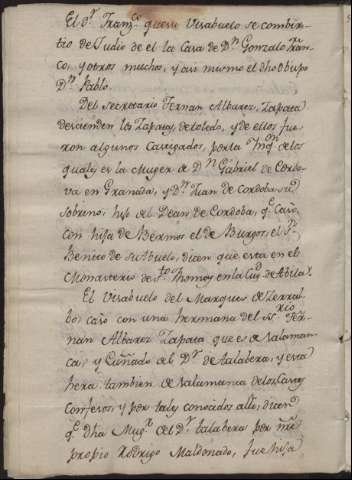 El Dr. Franco. que su Visabuelo se combir-
tio de Judio de el la Casa de Dn. Gonzalo Fran-
co, y otros muchos, y asi mismo el dho obispo
Dn. Pablo.
Del secretario Fernan Albarez, Zapata
descienden los Zapatas, de toledo, y de ellos fue-
ron algunos Castigados, por la Inqon. de los
quales es la Muger de Dn. Gabriel de Cordo-
va en Granada, y Dn. Juan de Cordoba, su
sobrino; hijo del Dean de Cordoba, qe. Casó
con hija de Bermos el de Burgos, el Sn.
Benito de su Abuelo, dicen que esta en el
Monasterio de Sto. Thomas en la Ciud. de Abila.
El Visabuelo del Marques de Zerral-
bo, casó con una hermana del Srio. Fer-
nan Albarez Zapata que es de Salaman-
ca, y Cuñado del Dr. de talabera, y esta
hera tambien de Salamanca de los
Confesos, y por tales conocidos allí, dicen
qe. Dha Mugr. del Dr. talabera por nre.
propio Rodrigo Maldonado, fue hija